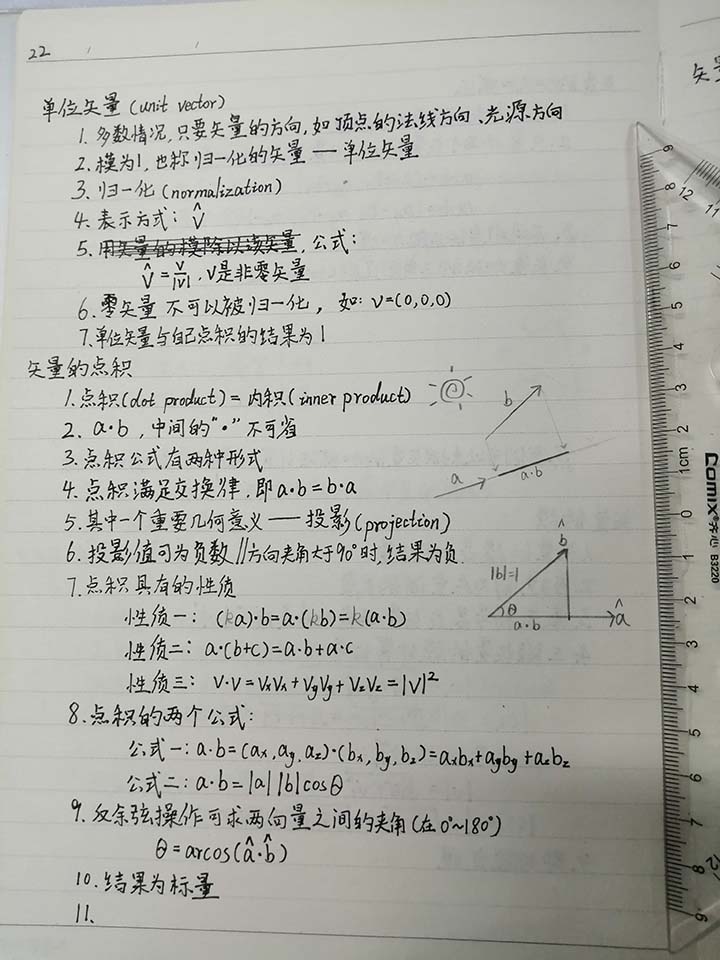 22
单位矢量 (unit vector)
1. 多数情况,只要矢量的方向,如 顶点的法线方向、光源方向
2. 模为1,也称 归一化的矢量 — 单位矢量
3. 归一化 (normalization)
4. 表示方式: v̂
5. 用矢量的模除以该矢量, 公式:
v̂ = v/|v|, v是非零矢量
6. 零矢量 不可以被归一化, 如: v=(0,0,0)
7. 单位矢量与自己点积的结果为1
矢量的点积
1. 点积(dot product) = 内积(inner product)
2. a·b, 中间的"·"不可省
3. 点积公式有两种形式
4. 点积满足交换律, 即a·b=b·a
5. 其中一个重要几何意义 — 投影(projection)
6. 投影值可为负数 // 方向夹角大于90°时,结果为负.
7. 点积具有的性质
性质一: (ka)·b=a·(kb)=k(a·b)
性质二: a·(b+c)=a·b+a·c
性质三: v·v=vxvx+vyvy+vzvz=|v|²
8. 点积的两个公式:
公式一: a·b=(ax,ay,az)·(bx,by,bz)=axbx+ayby+azbz
公式二: a·b=|a||b|cosθ
9. 反余弦操作可求两向量之间的夹角(在0°~180°)
θ=arcos(â·b̂)
10. 结果为标量
11.
b
a
a·b
b̂
|b|=1
θ
a·b
â
矢量
12
11
9
5
4
3
2
1cm
0
1
2
3
4
5
6
7
8
9
Comix 齐心 B3220